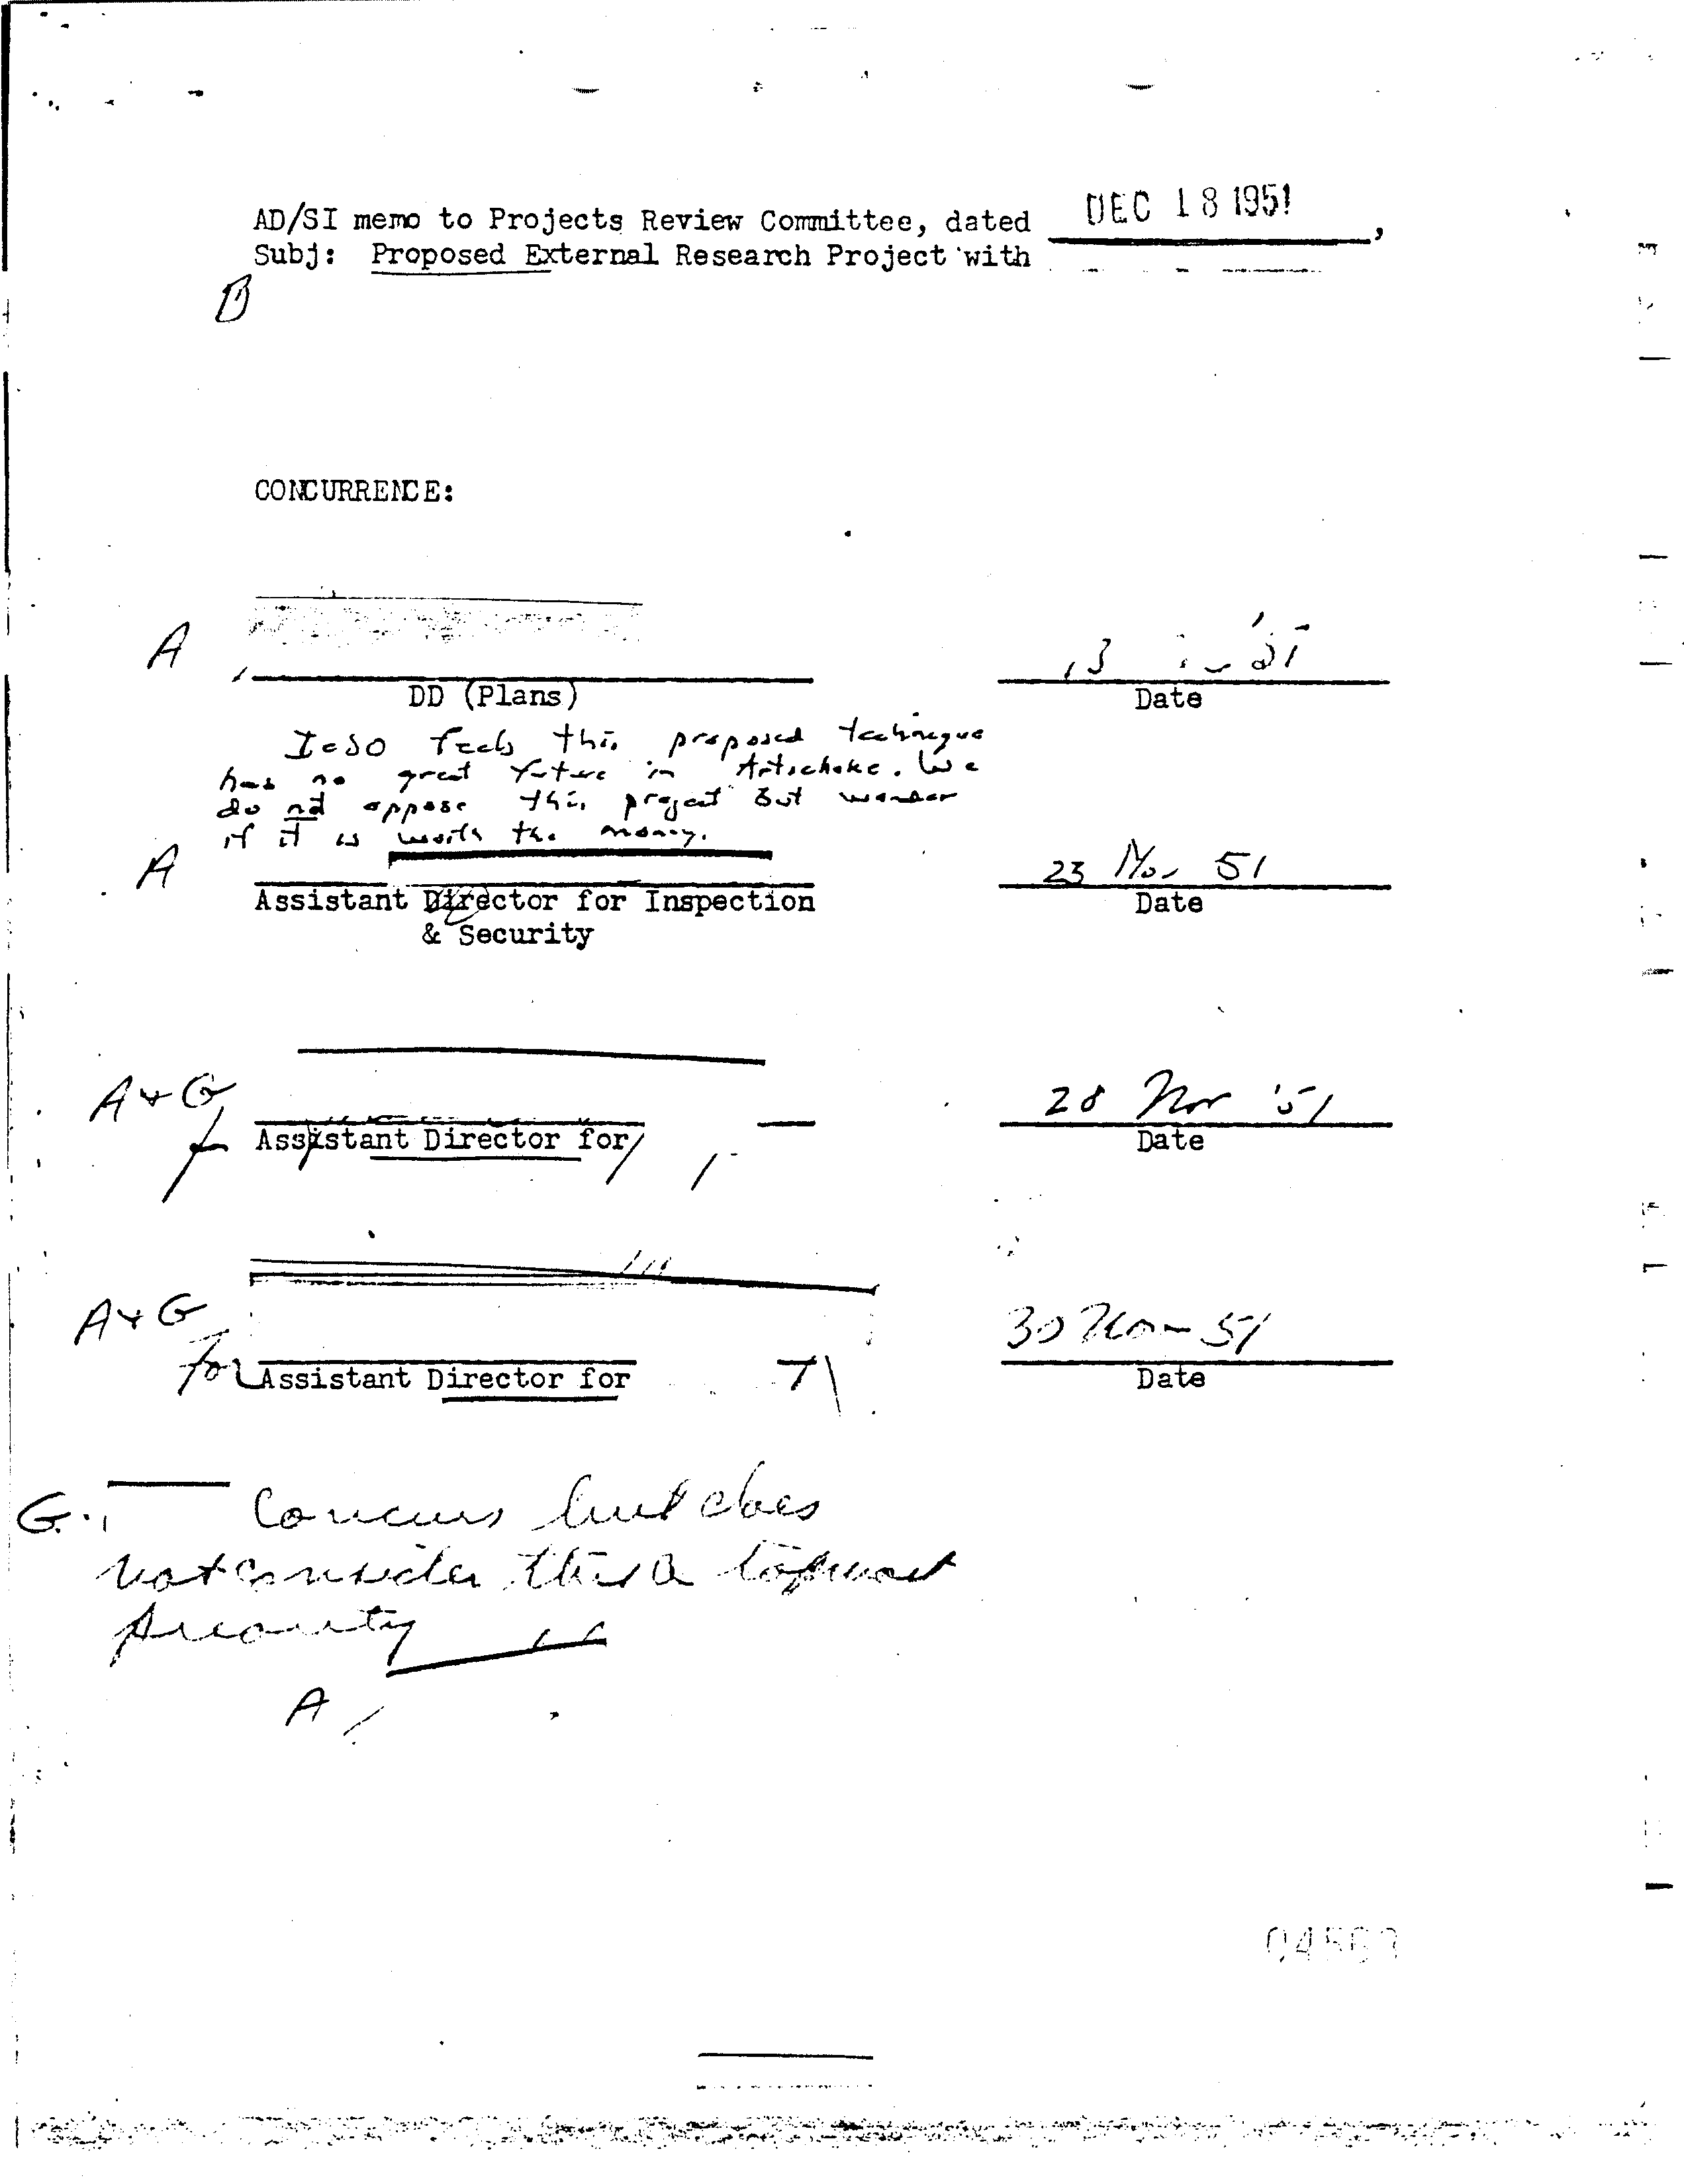 DEC 18 1951
AD/SI memo to Projects Review Committee, dated ,
Subj: Proposed External Research Project with
B
CONCURRENCE:
A
DD (Plans)
Date
I&SO feels this proposed technique
has no great future in Artichoke. We
do not oppose this project but wonder
if it is worth the money.
A
23 Nov 51
Assistant Director for Inspection
& Security
Date
A+G
28 Nov '51
Assistant Director for
Date
A+G
30 Nov 51
For Assistant Director for
Date
G. Concurs but does
not consider this a topmost
priority
A